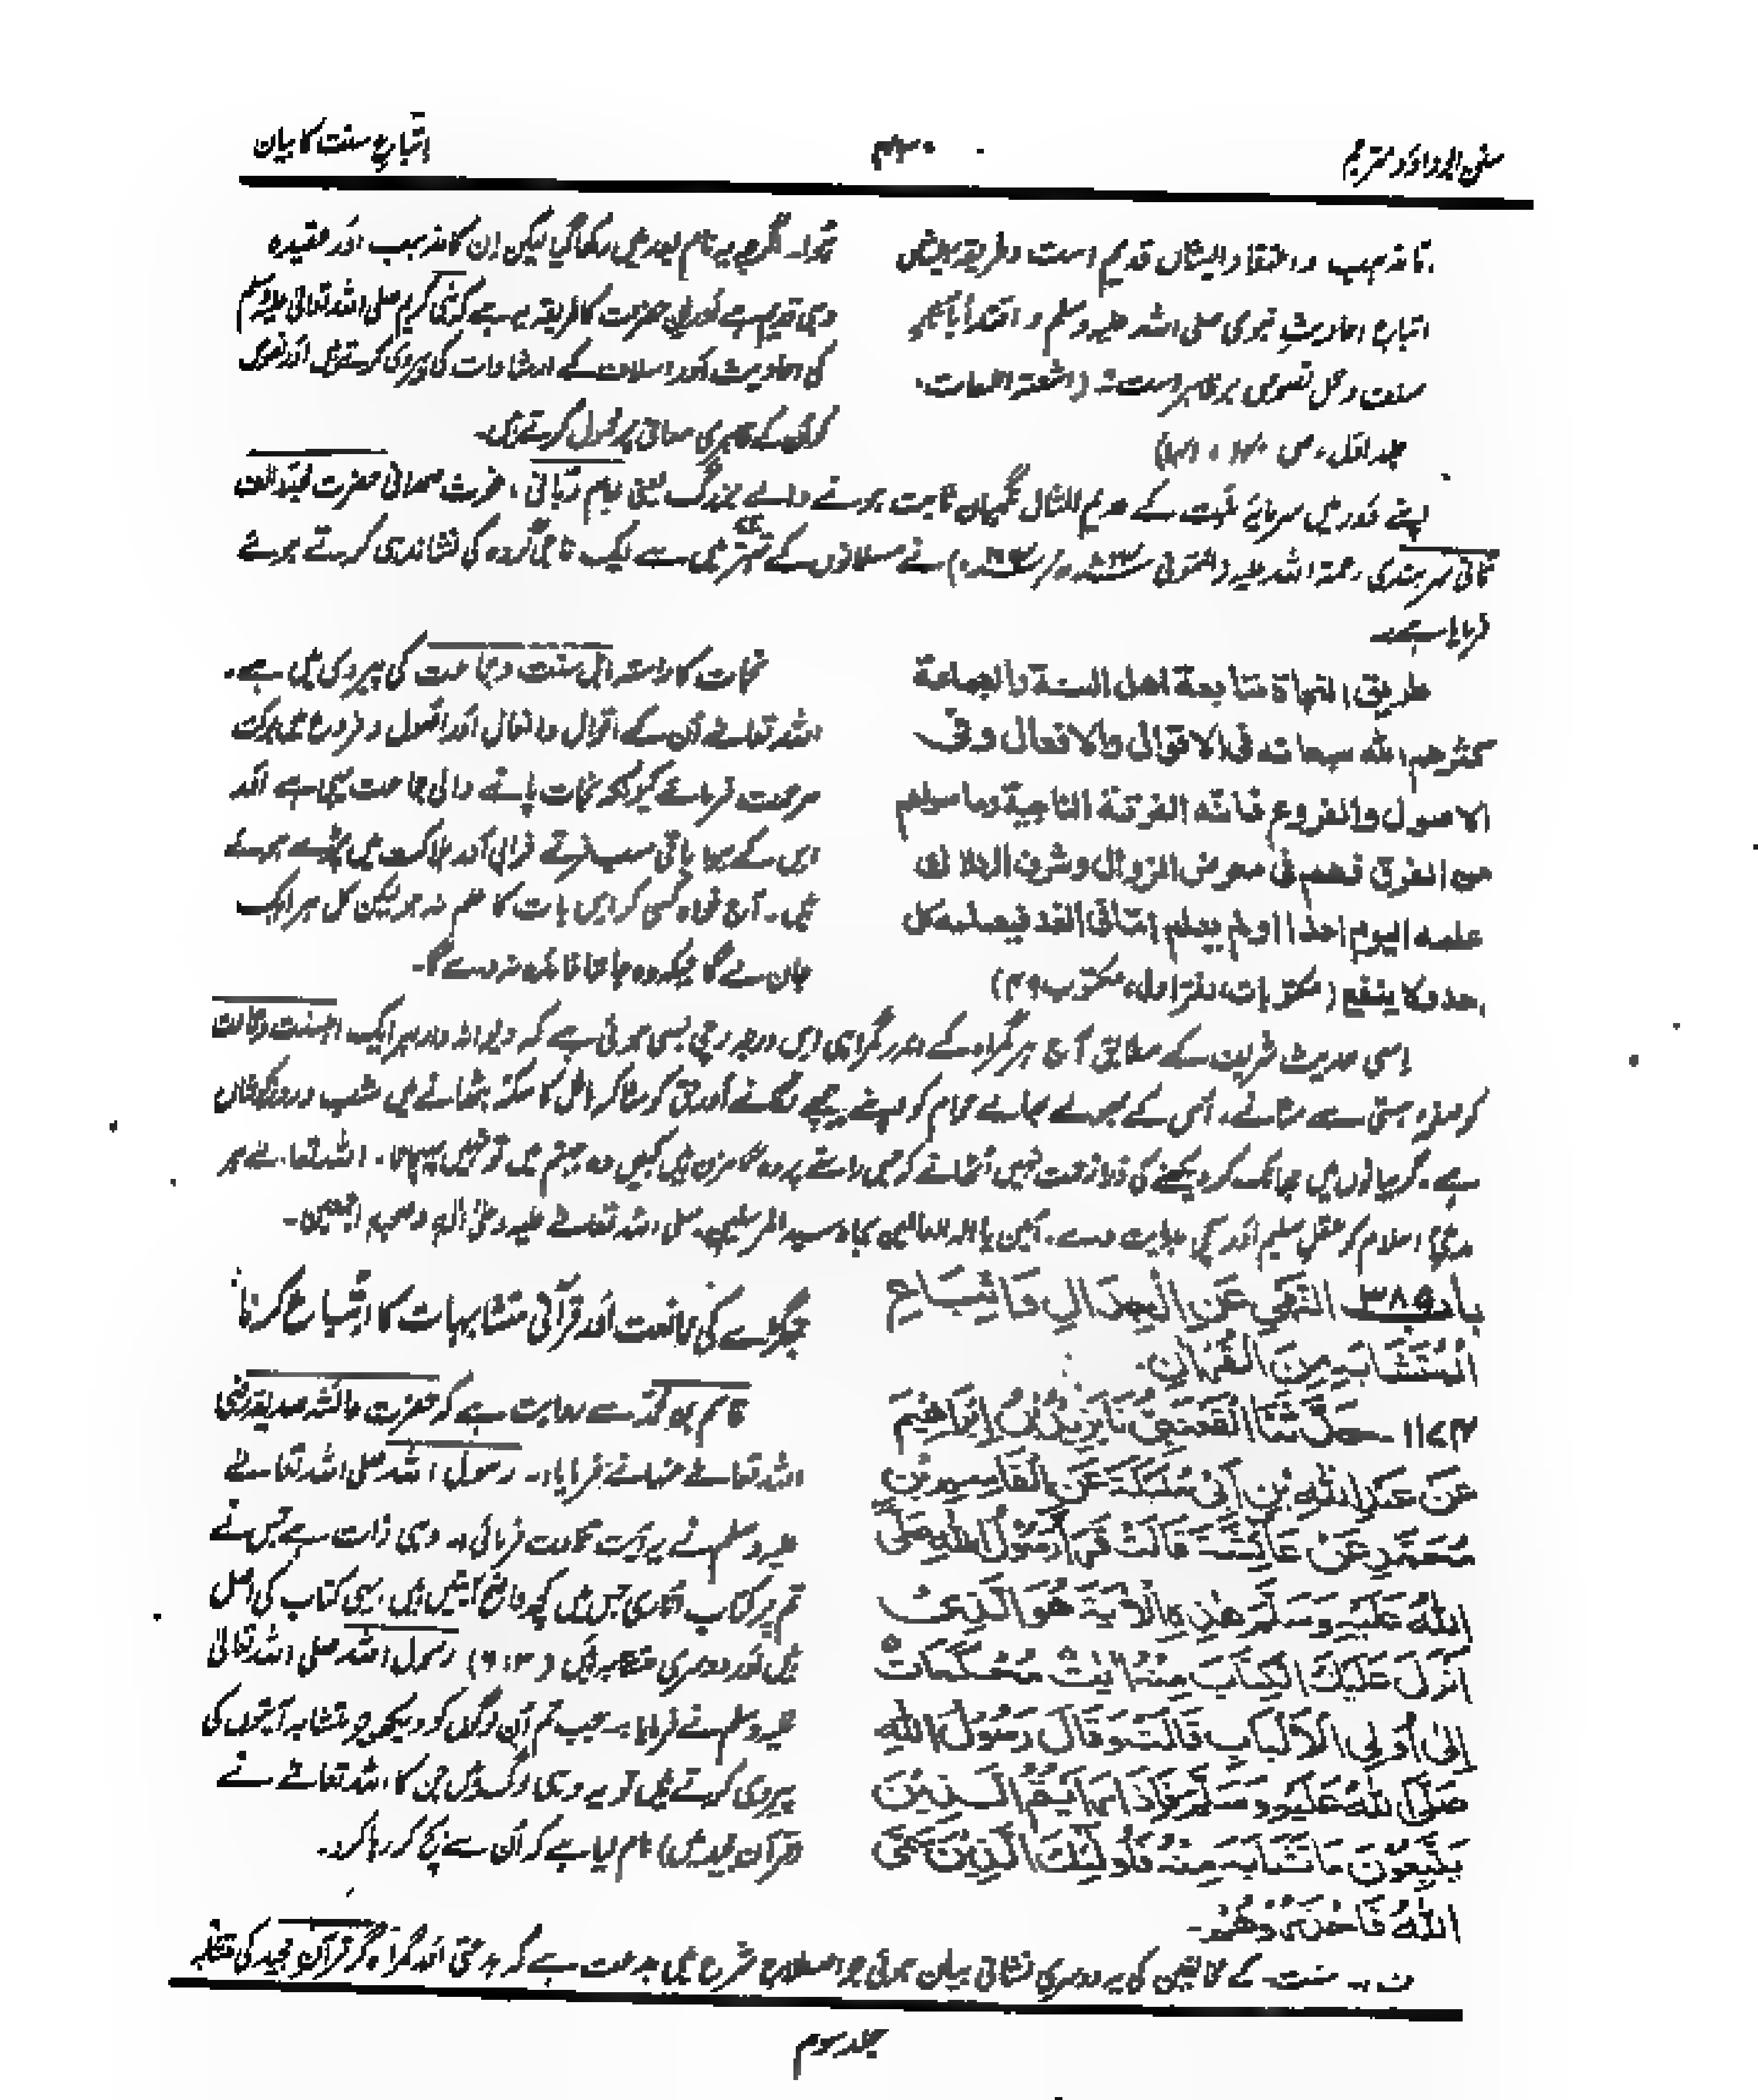 سنن ابوداؤد مترجم
۴۳۰
اتباعِ سنت کا بیان
تا مذہب و اعتقاد ایشاں قدیم است و طریقہ ایشاں
اتباع احادیثِ نبوی صلی اللہ علیہ وسلم و اقتدا بآثار
سلف و حمل نصوص بر ظاہر است۔ (اشعۃ اللمعات،
جلد اوّل، ص ۱۴۰، ۱۴۱)
ہوا۔ اگرچہ یہ نام بعد میں رکھا گیا لیکن اِن کا مذہب اور عقیدہ
وہی قدیم ہے اور اِن حضرت کا طریقہ یہ ہے کہ نبی کریم صلی اللہ تعالیٰ علیہ وسلم
کی احادیث اور اسلاف کے ارشادات کی پیروی کرتے ہیں اور نصوص
کو اُن کے ظاہری معانی پر محمول کرتے ہیں۔
اپنے دَور میں سرمایۂ ملّت کے عدیم المثال نگہبان ثابت ہونے والے بزرگ یعنی امام ربّانی، غوث صمدانی حضرت مجدّد الف
ثانی سرہندی رحمۃ اللہ علیہ (المتوفی نے مسلمانوں کے تہتّر میں سے ایک ناجی گروہ کی نشاندہی کرتے ہوئے
فرمایا ہے:۔
طریق النجاۃ متابعۃ اھل السنۃ والجماعۃ
کثرھم اللہ سبحانہ فی الاقوال والافعال وفی
الاصول والفروع فانہ الفرقۃ الناجیۃ وما سواھم
من الفرق فھم فی معرض الزوال وشرف الھلاک
علمہ الیوم احد اولم یعلم اما فی الغد فیعلمہ کل
احد ولا ینفع (مکتوبات، دفتر اول، مکتوب
نجات کا راستہ اہلِ سنت و جماعت کی پیروی میں ہے۔
اللہ تعالےٰ اُن کے اقوال و افعال اور اصول و فروع میں برکت
مرحمت فرمائے کیونکہ نجات پانے والی جماعت یہی ہے اور
اِس کے سوا باقی سب فرقے خرابی اور ہلاکت میں پڑے ہوئے
ہیں۔ آج خواہ کسی کو اِس بات کا علم نہ ہو لیکن کل ہر ایک
جان لے گا جبکہ وہ جاننا فائدہ نہ دے گا۔
اِسی حدیث شریف کے مطابق آج ہر گمراہ کے اندر گمراہی اِس درجہ رچی بسی ہوئی ہے کہ دیوانہ وار ہر ایک اہلسنت و جماعت
کو صفحۂ ہستی سے مٹانے، اُس کے بھولے بھالے عوام کو اپنے پیچھے لگانے اور حق کو مٹا کر باطل کا سکّہ بٹھانے میں شب و روز کوشاں
ہے۔ گریبانوں میں جھانک کر دیکھنے کی ذرا زحمت نہیں اُٹھاتے کہ جس راستے پر وہ گامزن ہیں کہیں وہ جہنم میں تو نہیں پہنچاتا۔ اللہ تعالےٰ ہر
مدعیِ اسلام کو عقلِ سلیم اور سچی ہدایت دے۔ آمین یا الہ العالمین بجاہ سید المرسلین صلی اللہ تعالےٰ علیہ وعلیٰ آلہٖ و صحبہٖ اجمعین۔
باب ۳۸۵ النَّھْیِ عَنِ الْجِدَالِ وَاتِّبَاعِ
الْمُتَشَابِہِ مِنَ الْقُرْاٰنِ۔
جھگڑے کی ممانعت اور قرآنی متشابہات کا اتباع کرنا
۱۱۷۴ــ حَدَّثَنَا الْقَعْنَبِیُّ نَا یَزِیْدُ بْنُ اِبْرَاھِیْمَ
عَنْ عَبْدِ اللہِ بْنِ اَبِیْ مُلَیْکَۃَ عَنِ الْقَاسِمِ بْنِ
مُحَمَّدٍ عَنْ عَائِشَۃَ قَالَتْ قَرَأَ رَسُوْلُ اللہِ صَلَّی
اللہُ عَلَیْہِ وَسَلَّمَ ھٰذِہِ الْاٰیَۃَ ھُوَ الَّذِیْ
اَنْزَلَ عَلَیْکَ الْکِتَابَ مِنْہُ اٰیٰتٌ مُّحْکَمَاتٌ
اِلٰی اُولِی الْاَلْبَابِ قَالَتْ وَقَالَ رَسُوْلُ اللہِ
صَلَّی اللہُ عَلَیْہِ وَسَلَّمَ فَاِذَا رَاَیْتُمُ الَّذِیْنَ
یَتَّبِعُوْنَ مَا تَشَابَہَ مِنْہُ فَاُولٰئِکَ الَّذِیْنَ سَمَّی
اللہُ فَاحْذَرُوْھُمْ۔
قاسم بن محمد سے روایت ہے کہ حضرت عائشہ صدیقہ رضی
اللہ تعالےٰ عنہا نے فرمایا:۔ رسول اللہ صلی اللہ تعالےٰ
علیہ وسلم نے یہ آیت تلاوت فرمائی:۔ وہی ذات ہے جس نے
تم پر کتاب اتاری جس میں کچھ واضح آیتیں ہیں، یہی کتاب کی اصل
ہیں اور دوسری متشابہ ہیں رسول اللہ صلی اللہ تعالیٰ
علیہ وسلم نے فرمایا:۔ جب تم اُن لوگوں کو دیکھو جو متشابہ آیتوں کی
پیروی کرتے ہیں تو یہ وہی لوگ ہیں جن کا اللہ تعالےٰ نے
(قرآن مجید میں) نام لیا ہے کہ اُن سے بچ کر رہا کرو۔
ف:۔ سنت کے مخالفین کی یہ دوسری نشانی بیان ہوئی جو اصطلاحِ شرع میں بدعت ہے کہ بدعتی اور گمراہ گر قرآنِ مجید کی متشابہ
جلد سوم